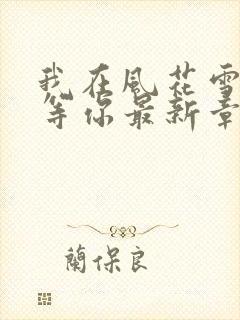 我在風花雪
等你最新章
蘭保良